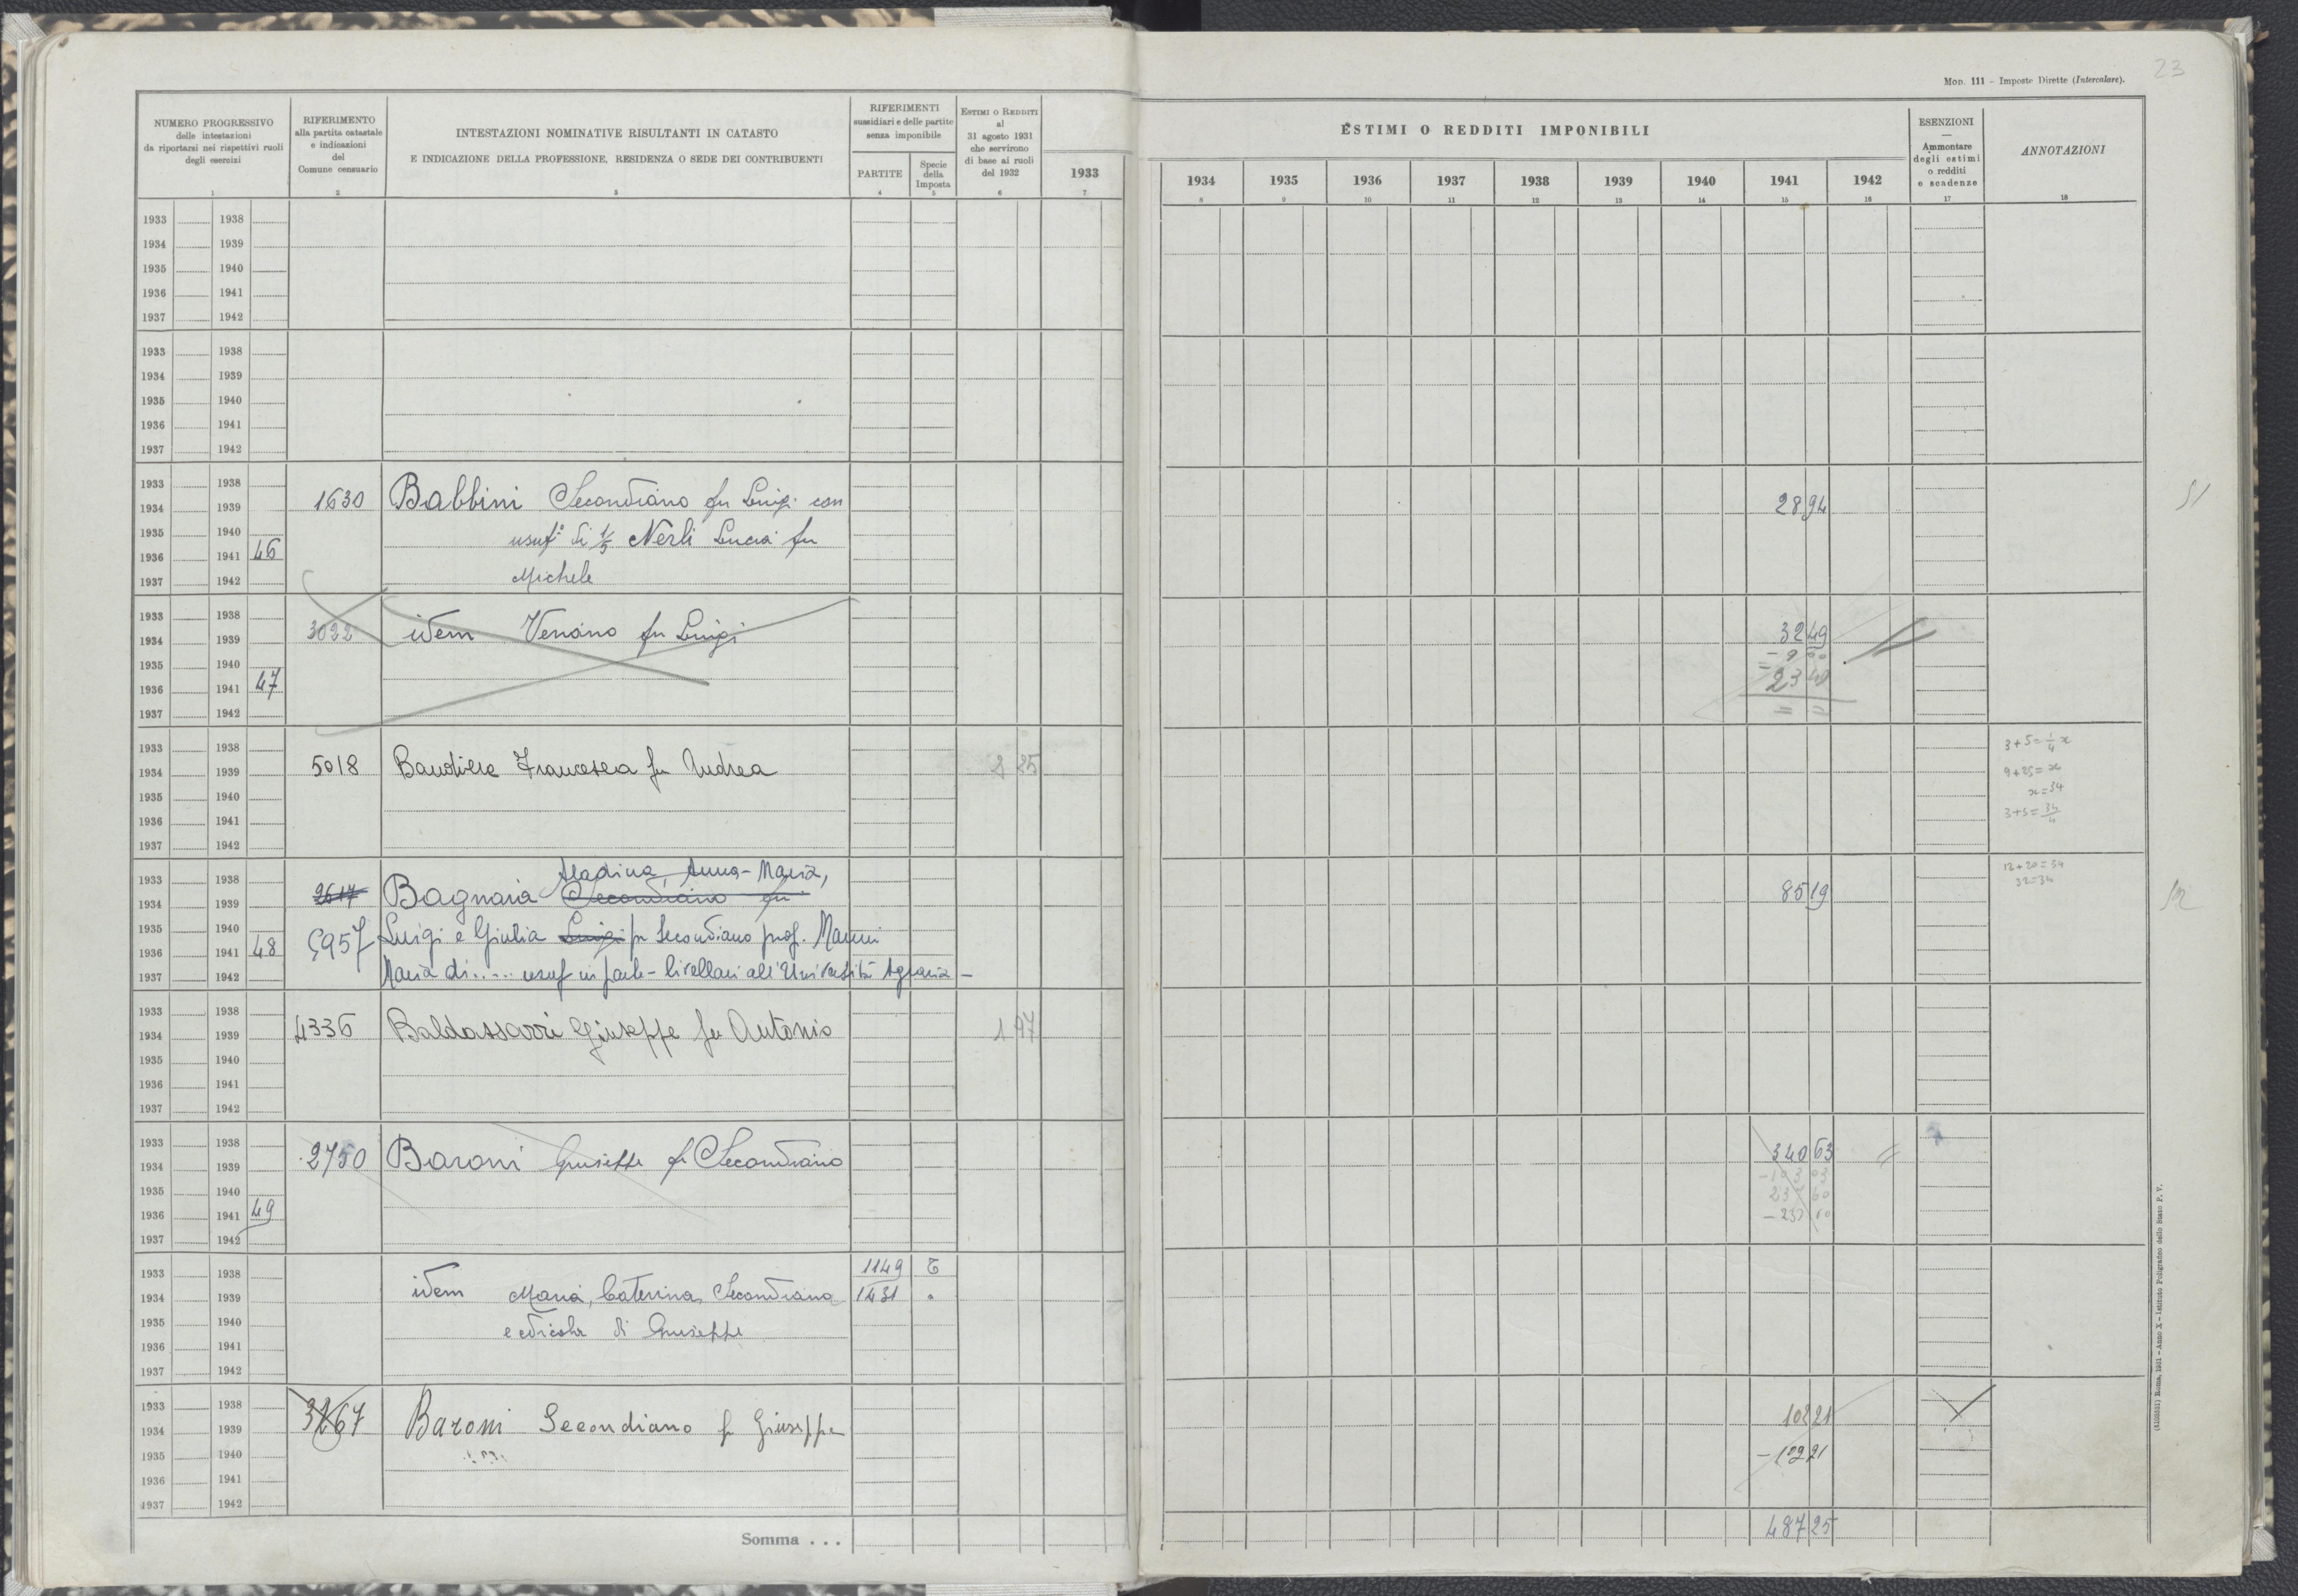 23
Mod. 111 – Imposte Dirette (Intercalare).
NUMERO PROGRESSIVO
delle intestazioni
da riportarsi nei rispettivi ruoli
degli esercizi
1
RIFERIMENTO
alla partita catastale
e indicazioni
del
Comune censuario
2
INTESTAZIONI NOMINATIVE RISULTANTI IN CATASTO
E INDICAZIONE DELLA PROFESSIONE, RESIDENZA O SEDE DEI CONTRIBUENTI
3
RIFERIMENTI
sussidiari e delle partite
senza imponibile
PARTITE
4
Specie
della
Imposta
5
ESTIMI O REDDITI
al
31 agosto 1931
che servirono
di base ai ruoli
del 1932
6
1933
7
ESTIMI O REDDITI IMPONIBILI
1934 1935 1936 1937 1938 1939 1940 1941 1942
8 9 10 11 12 13 14 15 16
ESENZIONI
—
Ammontare
degli estimi
o redditi
e scadenze
17
ANNOTAZIONI
18
1933 1938
1934 1939
1935 1940
1936 1941
1937 1942
1933 1938
1934 1939
1935 1940
1936 1941
1937 1942
1933 1938
1934 1939 1630 Babbini Secondiano fu Luigi con 28 94 51
1935 1940 usuf: di 1/3 Nerli Lucia fu
1936 1941 46
1937 1942 Michele
1933 1938
1934 1939 3022 idem Venano fu Luigi 32 49
1935 1940 - 9 00
1936 1941 47 23 49
1937 1942 = =
1933 1938 3+5=1/4 x
1934 1939 5018 Bandiere Francesca fu Andrea 2 25 9+25=x
1935 1940 x=34
1936 1941 3+5=34/4
1937 1942
Aladina, Anna-Maria, 12+20=34
1933 1938 32=34
1934 1939 2617 Bagnaia Secondiano fu 85 19 52
1935 1940 Luigi e Giulia Luigi fu Secondiano prof. Manni
1936 1941 48 5957
1937 1942 Maria di..... usuf in parte - livellari all'Università Agraria -
1933 1938
1934 1939 4336 Baldassarri Giuseppe fu Antonio 1 97
1935 1940
1936 1941
1937 1942
1933 1938
1934 1939 2750 Baroni Giuseppe fu Secondiano 340 63
1935 1940 - 103 03
237 60
1936 1941 49 - 237 60
1937 1942
1933 1938 1149 T
1934 1939 idem Maria, Caterina, Secondiana 1431 "
1935 1940 di Giuseppe
1936 1941
1937 1942
1933 1938
1934 1939 3267 Baroni Secondiano fu Giuseppe 102 21
1935 1940 - 102 21
1936 1941
1937 1942
Somma . . . 487 25
(4103321) Roma, 1931 – Anno X – Istituto Poligrafico dello Stato P. V.